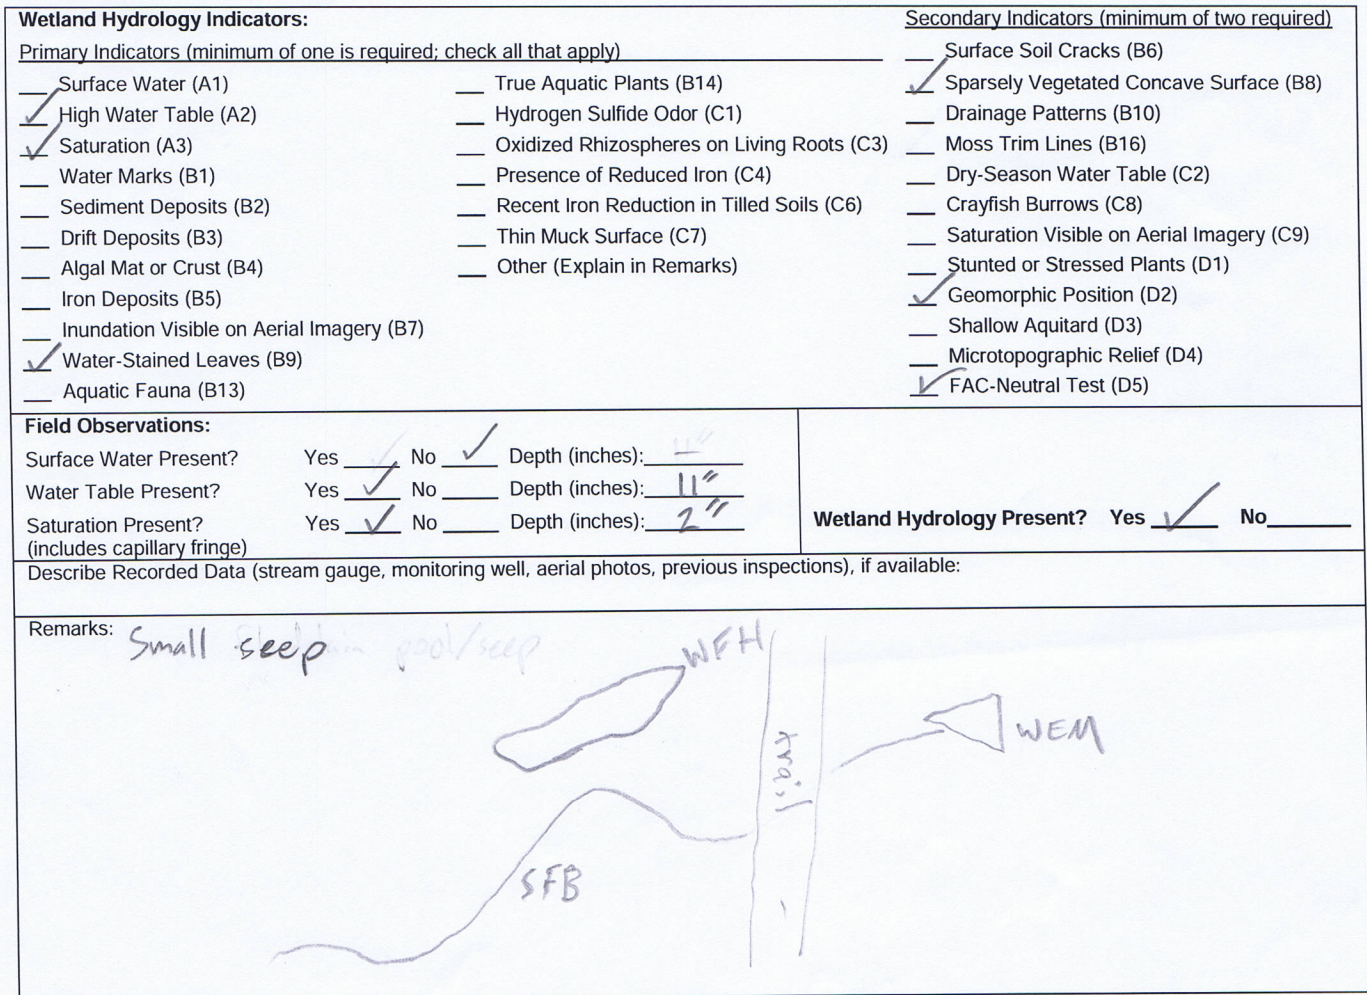 Wetland Hydrology Indicators:
Primary Indicators (minimum of one is required; check all that apply)
Surface Water (A1)
✓ High Water Table (A2)
✓ Saturation (A3)
Water Marks (B1)
Sediment Deposits (B2)
Drift Deposits (B3)
Algal Mat or Crust (B4)
Iron Deposits (B5)
Inundation Visible on Aerial Imagery (B7)
✓ Water-Stained Leaves (B9)
Aquatic Fauna (B13)
True Aquatic Plants (B14)
Hydrogen Sulfide Odor (C1)
Oxidized Rhizospheres on Living Roots (C3)
Presence of Reduced Iron (C4)
Recent Iron Reduction in Tilled Soils (C6)
Thin Muck Surface (C7)
Other (Explain in Remarks)
Secondary Indicators (minimum of two required)
Surface Soil Cracks (B6)
✓ Sparsely Vegetated Concave Surface (B8)
Drainage Patterns (B10)
Moss Trim Lines (B16)
Dry-Season Water Table (C2)
Crayfish Burrows (C8)
Saturation Visible on Aerial Imagery (C9)
Stunted or Stressed Plants (D1)
✓ Geomorphic Position (D2)
Shallow Aquitard (D3)
Microtopographic Relief (D4)
✓ FAC-Neutral Test (D5)
Field Observations:
Surface Water Present? Yes No ✓ Depth (inches):
Water Table Present? Yes ✓ No Depth (inches): 11"
Saturation Present? Yes ✓ No Depth (inches): 2"
(includes capillary fringe)
Wetland Hydrology Present? Yes ✓ No
Describe Recorded Data (stream gauge, monitoring well, aerial photos, previous inspections), if available:
Remarks: Small seep pool/seep
WFH
trail
WEM
SFB